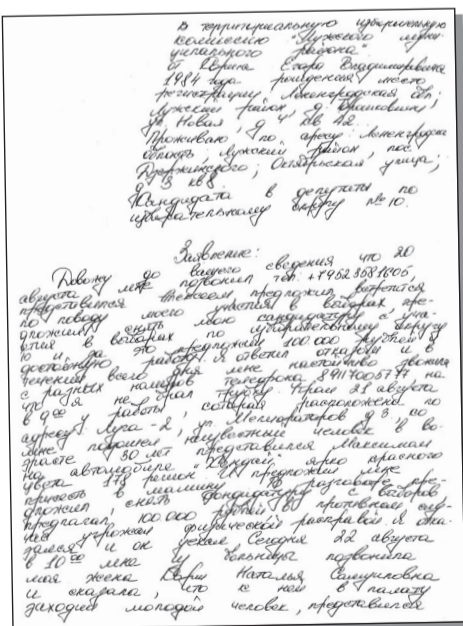 В территориальную избирательную
комиссию "Лужского муни-
ципального района"
от Егора Владимировича
1984 года рождения место
регистрации Ленинградская обл;
Лужский район, д.
ул Новая д 4 кв 42.
Проживаю по адресу: Ленинградская
область, Лужский район, пос.
Дзержинского; Октябрьская улица;
д 3 кв 8.
Кандидата в депутаты по
избирательному округу № 10.
Заявление:
Довожу до вашего сведения что 20
августа мне позвонил тел. +79523581605,
представился Алексеем, предложил встретится
по поводу моего участия в выборах пре-
дложил снять мою кандидатуру с уча-
стия в выборах по избирательному округу
10 и за это предложил 100 000 рублей и
достойную работу. Я ответил отказом и в
течении всего дня мне настойчиво звонили
с разных номеров телефона 89117005777 на
что я не брал трубку. Утром 21 августа
в 9 00 у работы, которая расположена по
адресу: Луга-2, ул Мелиораторов д 3 ко
мне подошел неизвестный человек в во-
зрасте 30 лет представился Максимом
на автомобиле "Хендай" ярко красного
цвета 178 регион и предложил мне
присесть в машину. В разговоре пре-
дложил, снять кандидатуру с выборов,
предлагал, 100 000 рублей в противном слу-
чае угрожал физической расправой. Я отка-
зался и он уехал. Сегодня 22 августа
в 10 00 мне из больницы позвонила
моя жена Наталья
и сказала, что к ней в палату
заходил молодой человек, представился